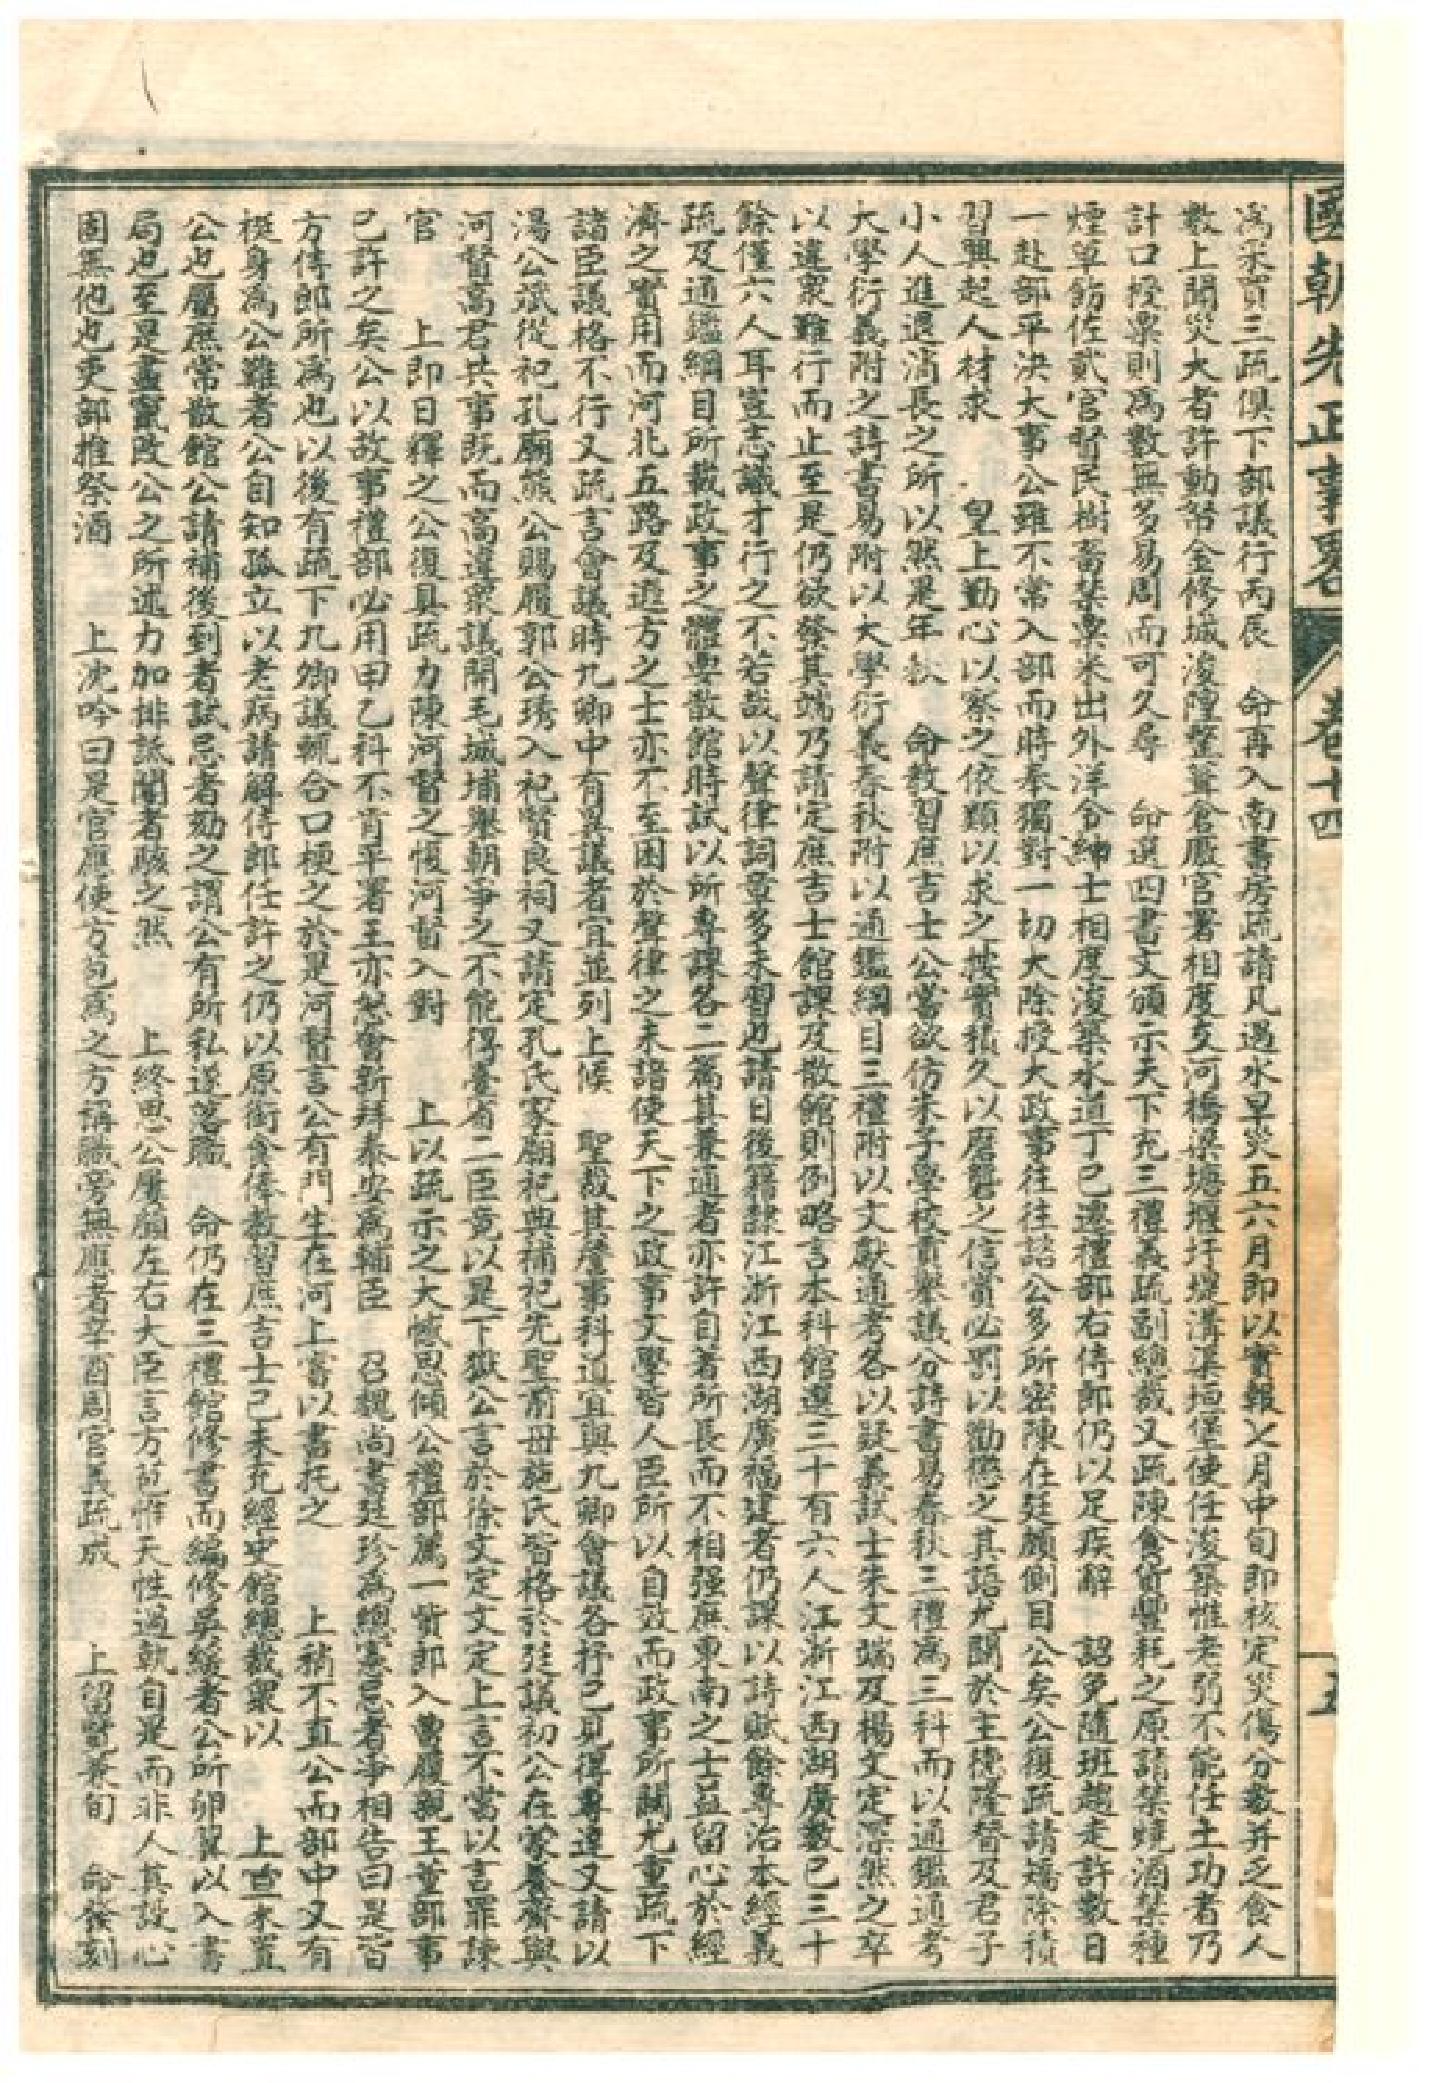 國朝先正事畧 卷十四 五
爲采買三疏俱下部議行丙辰 命再入南書房疏請凡遇水旱災五六月即以實報七月中旬即核定災傷分數并乏食人
數上聞災大者許動帑金修城浚隍塋葺倉廒官署相度支河橋梁塘堰圩堤溝渠垣堡使任浚築惟老弱不能任土功者乃
計口授粟則爲數無多易周而可久尋 命選四書文頒示天下充三禮義疏副總裁又疏陳食貨豐耗之原請禁燒酒禁種
煙草飭佐貳官督民樹畜禁粟米出外洋令紳士相度浚築水道丁巳遷禮部右侍郎仍以足疾辭 詔免隨班趨走許數日
一赴部平決大事公雖不常入部而時奉獨對一切大除授大政事往往諮公多所密陳在廷願側目公矣公復疏請矯除積
習興起人材求 皇上勤心以察之依類以求之按實積久以磨礱之信賞必罰以勸懲之其語尤關於主德隆替及君子
小人進退消長之所以然是年秋 命教習庶吉士公嘗欲仿朱子學校貢舉議分詩書易春秋三禮爲三科而以通鑑通考
大學衍義附之詩書易附以大學衍義春秋附以通鑑綱目三禮附以文獻通考各以疑義試士朱文端及楊文定深然之卒
以違衆難行而止至是仍欲發其端乃請定庶吉士館課及散館則例略言本科館選三十有六人江浙江西湖廣數已三十
餘僅六人耳豈志識才行之不若哉以聲律詞章多未習也請日後籍隸江浙江西湖廣福建者仍課以詩賦餘專治本經義
疏及通鑑綱目所載政事之體要散館時試以所專課各二篇其兼通者亦許自著所長而不相强庶東南之士益留心於經
濟之實用而河北五路及遐方之士亦不至困於聲律之末諸使天下之政事文學皆人臣所以自效而政事所關尤重疏下
諸臣議格不行又疏言會議時九卿中有異議者宜並列上候 聖裁其詹事科道宜與九卿會議各抒己見得專達又請以
湯公斌從祀孔廟熊公賜履郭公琇入祀賢良祠又請定孔氏家廟祀典補祀先聖前母施氏皆格於廷議初公在蒙養齋與
河督高君共事既而高違衆議開毛城埔舉朝爭之不能得臺省二臣竟以是下獄公言於徐文定文定上言不當以言罪諫
官 上即日釋之公復具疏力陳河督之愎河督入對 上以疏示之大慽思傾公禮部薦一貲郎入曹履親王董部事
已許之矣公以故事禮部必用甲乙科不肯平署王亦怒會新拜泰安爲輔臣 召魏尚書廷珍爲總憲忌者爭相告曰是皆
方侍郎所爲也以後有疏下九卿議輒合口梗之於是河督言公有門生在河上嘗以書托之 上稍不直公而部中又有
梃身爲公難者公自知孤立以老病請解侍郎任許之仍以原銜食俸教習庶吉士己未充經史館總裁衆以 上意未置
公也屬庶常散館公請補後到者試忌者劾之謂公有所私遂落職 命仍在三禮館修書而編修吳綬者公所卵翼以入書
局也至是盡竄改公之所述力加排詆聞者駭之然 上終思公屢顧左右大臣言方苞惟天性過執自是而非人其設心
固無他也吏部推祭酒 上沈吟曰是官應使方苞爲之方稱職旁無應者辛酉周官義疏成 上留覽兼旬 命發刻